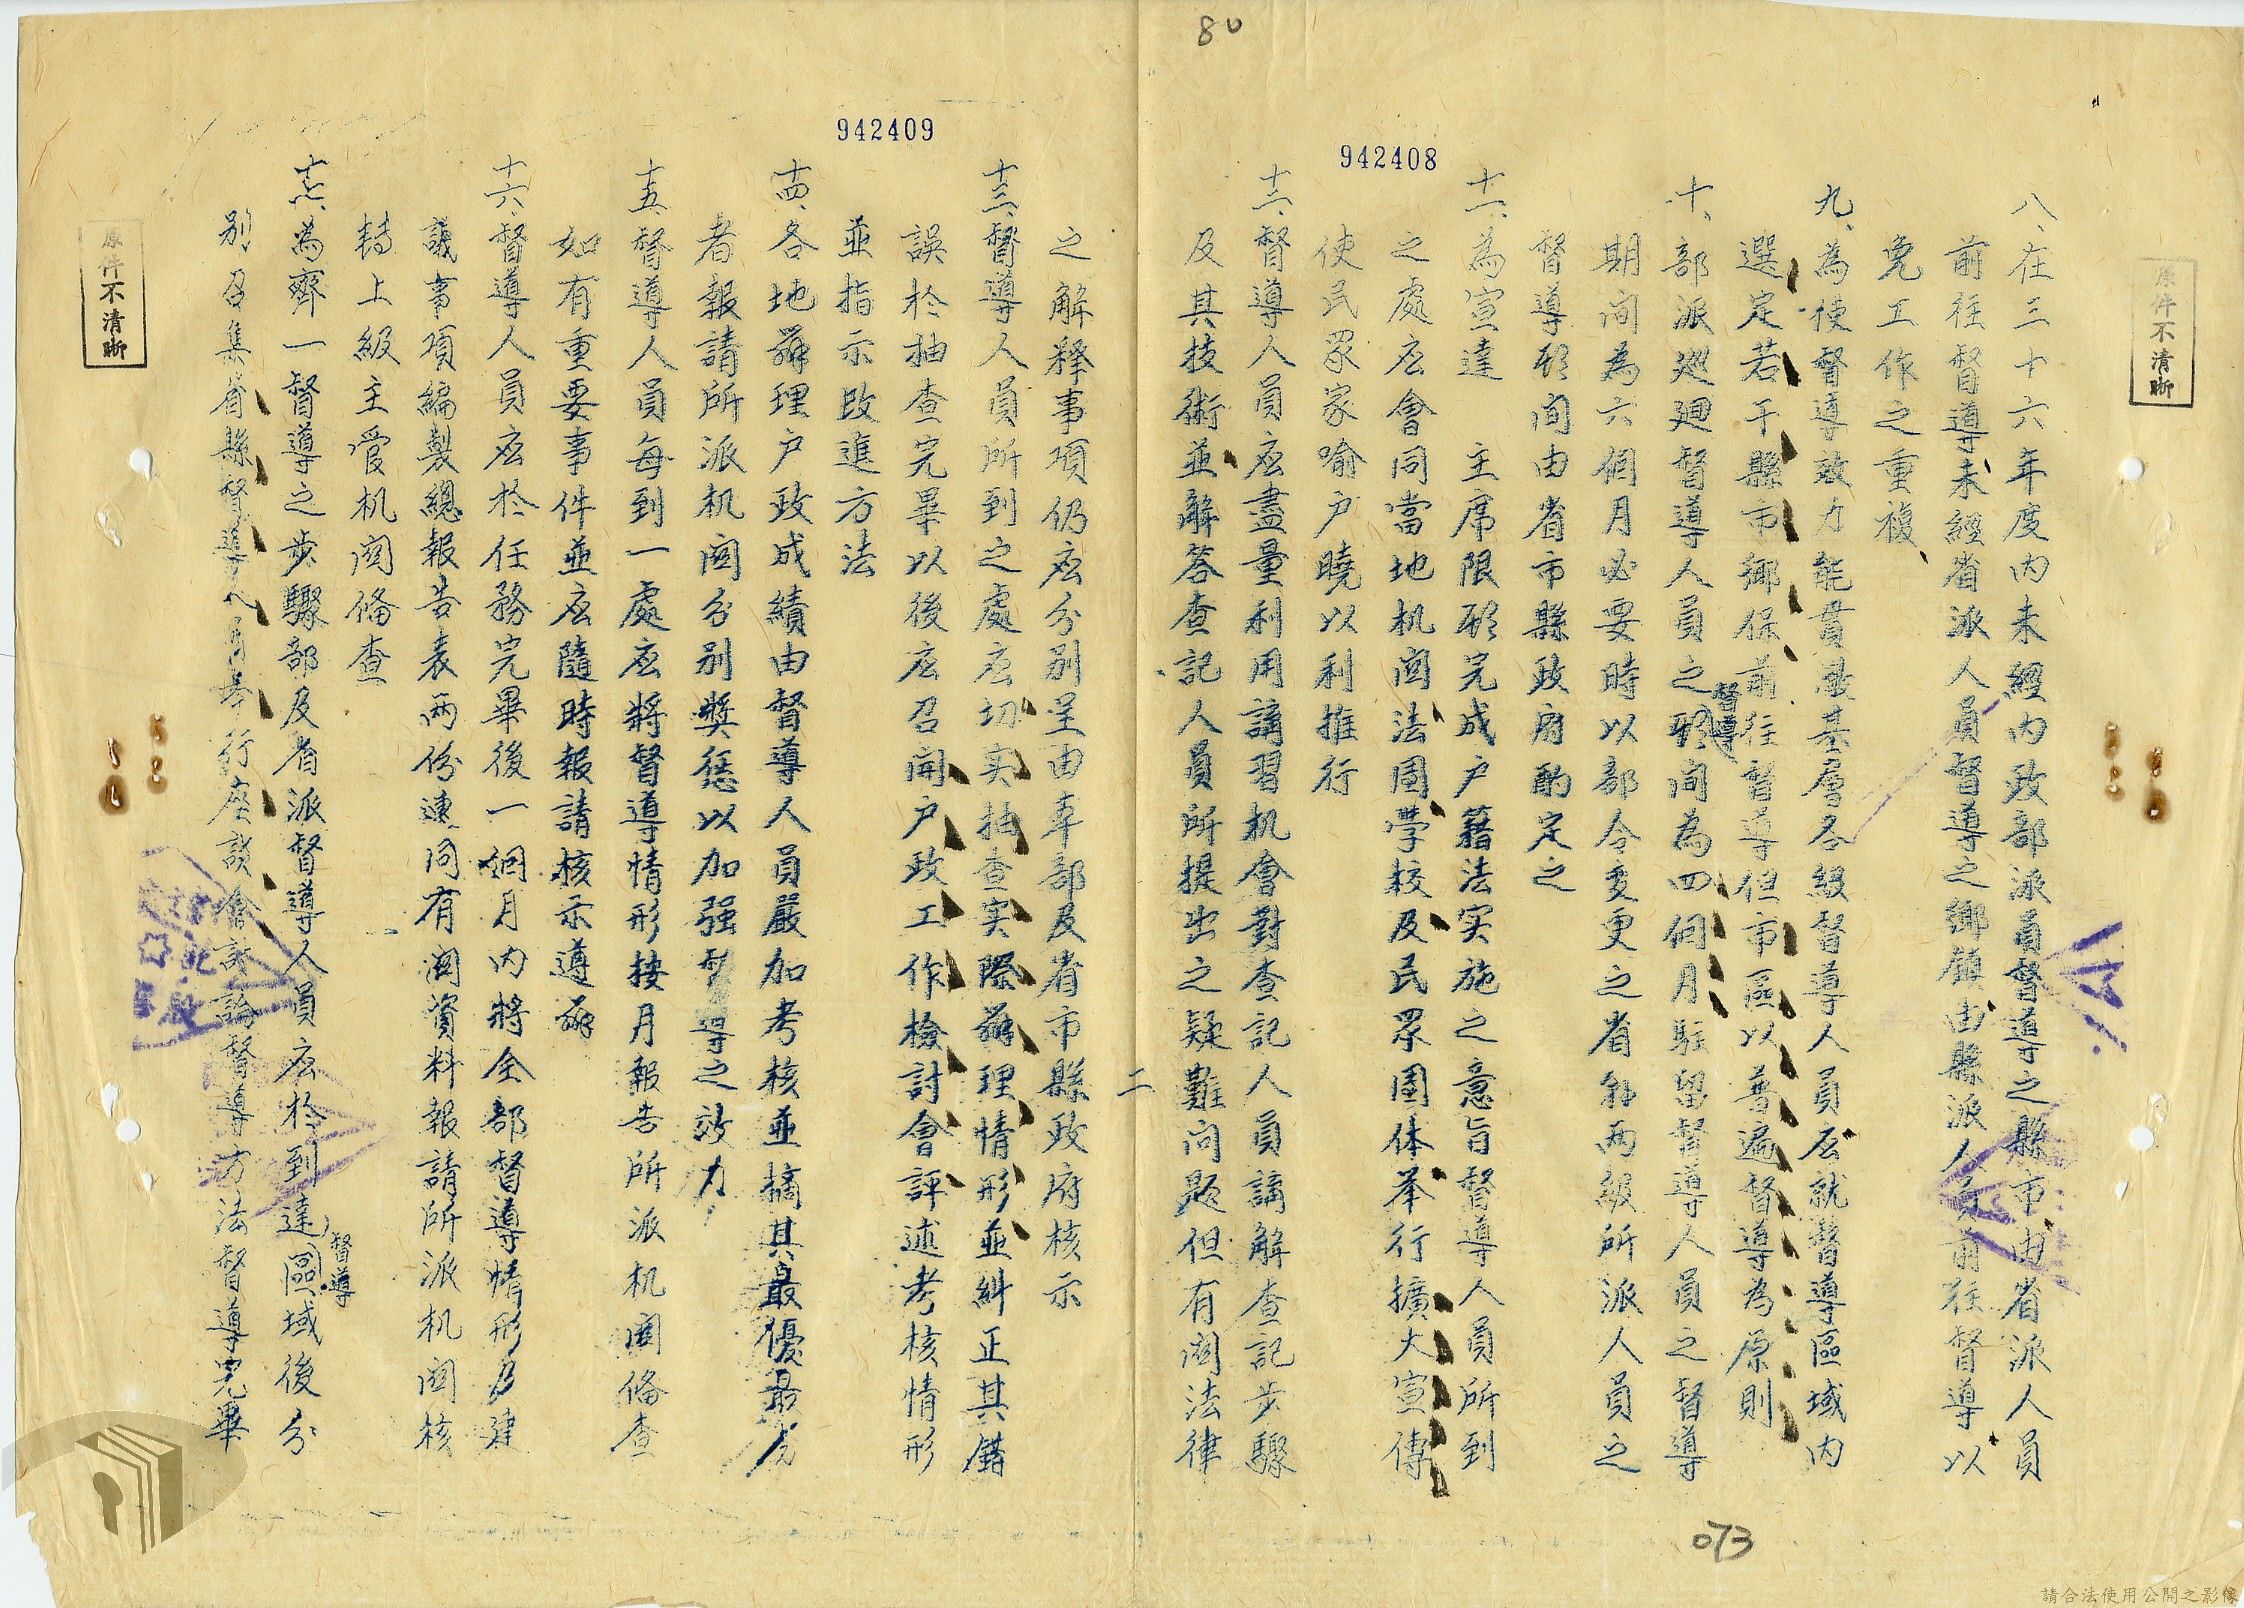 80
942408
八、在三十六年度内未經内政部派員督導之縣市由省派人員
前往督導未經省派人員督導之鄉鎮由縣派人員前往督導以
免工作之重複
九、為使督導效力能貫澈基層各級督導人員应就督導區域内
選定若干縣市鄉保前往督導但市區以普遍督導為原則
十、部派廵迴督導人員之督導期间為四個月駐留督導人員之督導
期间為六個月必要時以部令变更之省縣两級所派人員之
督導期间由省市縣政府酌定之
十一、為宣達 主席限期完成户籍法实施之意旨督導人員所到
之處应會同當地机関法団學校及民眾团体举行擴大宣傳
使民眾家喻户曉以利推行
十二、督導人員应盡量利用講習机會對查記人員講解查記步驟
及其技術並解答查記人員所提出之疑難问題但有関法律
二
942409
之解释事項仍应分别呈由本部及省市縣政府核示
十三、督導人員所到之處应切实抽查实際辦理情形並糾正其錯
誤於抽查完畢以後应召開户政工作檢討會評述考核情形
並指示改進方法
十四、各地辦理户政成績由督導人員嚴加考核並摘其最優最劣
者報請所派机関分别獎懲以加强督導之效力
十五、督導人員每到一處应將督導情形按月報告所派机関俻查
如有重要事件並应隨時報請核示遵辦
十六、督導人員应於任務完畢後一個月内將全部督導情形及建
議事項編製總報告表两份連同有関資料報請所派机関核
轉上級主管机関俻查
十七、為齊一督導之步驟部及省派督導人員应於到達督導區域後分
别召集省縣督導人員举行座談會討論督導方法督導完畢
原件不清晰
原件不清晰
073
請合法使用公開之影像